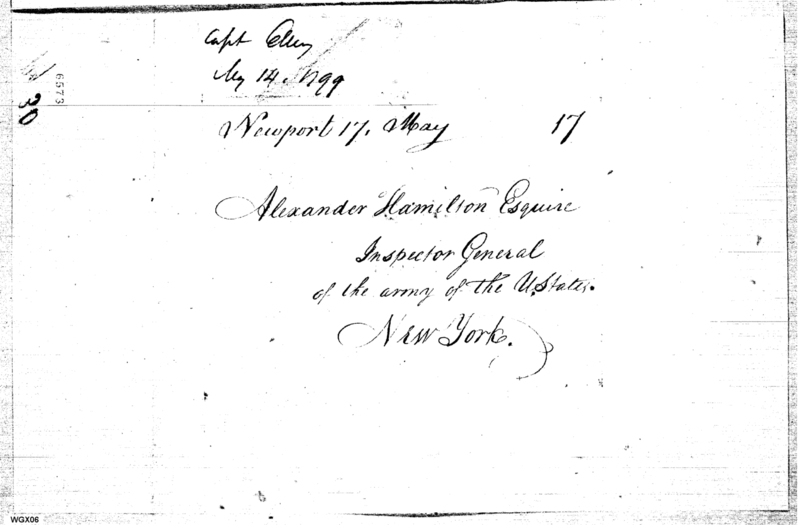 Capt Ellery
May 14. 1799
6573
30
Newport 17. May 17
Alexander Hamilton Esquire
Inspector General
of the army of the U. States.
New York.
WGX06